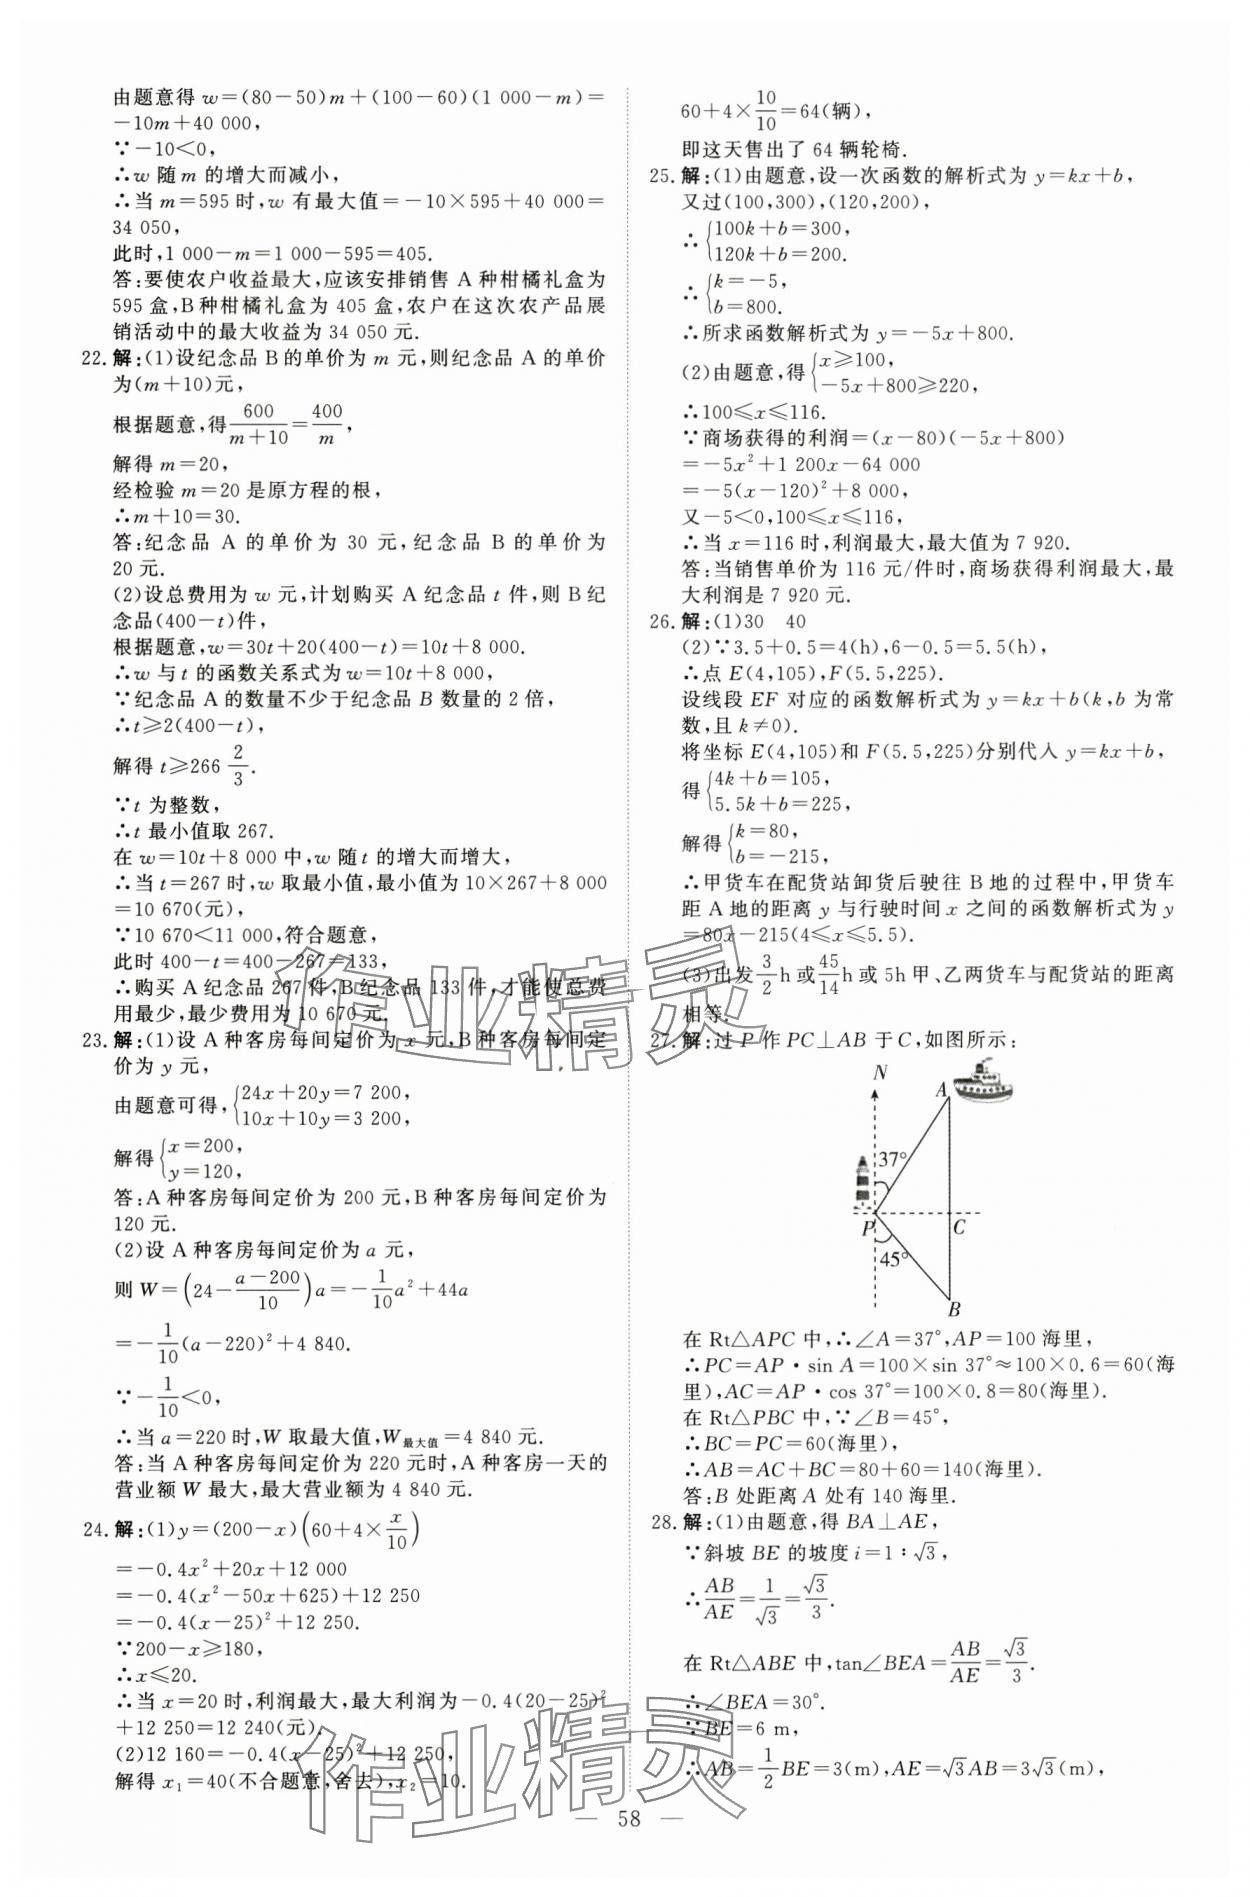 由题意得 w=(80-50)m+(100-60)(1 000-m)=
-10m+40 000,
∵-10<0,
∴w 随 m 的增大而减小,
∴当 m=595 时,w 有最大值=-10×595+40 000=
34 050,
此时,1 000-m=1 000-595=405.
答:要使农户收益最大,应该安排销售 A 种柑橘礼盒为
595 盒,B 种柑橘礼盒为 405 盒,农户在这次农产品展
销活动中的最大收益为 34 050 元.
22.解:(1)设纪念品 B 的单价为 m 元,则纪念品 A 的单价
为(m+10)元,
根据题意,得600/(m+10)=400/m,
解得 m=20,
经检验 m=20 是原方程的根,
∴m+10=30.
答:纪念品 A 的单价为 30 元,纪念品 B 的单价为
20 元.
(2)设总费用为 w 元,计划购买 A 纪念品 t 件,则 B 纪
念品(400-t)件,
根据题意,w=30t+20(400-t)=10t+8 000.
∴w 与 t 的函数关系式为 w=10t+8 000.
∵纪念品 A 的数量不少于纪念品 B 数量的 2 倍,
∴t≥2(400-t),
解得 t≥266 2/3.
∵t 为整数,
∴t 最小值取 267.
在 w=10t+8 000 中,w 随 t 的增大而增大,
∴当 t=267 时,w 取最小值,最小值为 10×267+8 000
=10 670(元),
∵10 670<11 000,符合题意,
此时 400-t=400-267=133,
∴购买 A 纪念品 267 件,B 纪念品 133 件,才能使总费
用最少,最少费用为 10 670 元.
23.解:(1)设 A 种客房每间定价为 x 元,B 种客房每间定
价为 y 元,
由题意可得,{24x+20y=7 200,
10x+10y=3 200,
解得{x=200,
y=120,
答:A 种客房每间定价为 200 元,B 种客房每间定价为
120 元.
(2)设 A 种客房每间定价为 a 元,
则 W=(24-(a-200)/10)a=-1/10a²+44a
=-1/10(a-220)²+4 840.
∵-1/10<0,
∴当 a=220 时,W 取最大值,W最大值=4 840 元.
答:当 A 种客房每间定价为 220 元时,A 种客房一天的
营业额 W 最大,最大营业额为 4 840 元.
24.解:(1)y=(200-x)(60+4×x/10)
=-0.4x²+20x+12 000
=-0.4(x²-50x+625)+12 250
=-0.4(x-25)²+12 250.
∵200-x≥180,
∴x≤20.
∴当 x=20 时,利润最大,最大利润为-0.4(20-25)²
+12 250=12 240(元).
(2)12 160=-0.4(x-25)²+12 250,
解得 x₁=40(不合题意,舍去),x₂=10.
60+4×10/10=64(辆),
即这天售出了 64 辆轮椅.
25.解:(1)由题意,设一次函数的解析式为 y=kx+b,
又过(100,300),(120,200),
∴{100k+b=300,
120k+b=200.
∴{k=-5,
b=800.
∴所求函数解析式为 y=-5x+800.
(2)由题意,得{x≥100,
-5x+800≥220,
∴100≤x≤116.
∵商场获得的利润=(x-80)(-5x+800)
=-5x²+1 200x-64 000
=-5(x-120)²+8 000,
又-5<0,100≤x≤116,
∴当 x=116 时,利润最大,最大值为 7 920.
答:当销售单价为 116 元/件时,商场获得利润最大,最
大利润是 7 920 元.
26.解:(1)30 40
(2)∵3.5+0.5=4(h),6-0.5=5.5(h),
∴点 E(4,105),F(5.5,225).
设线段 EF 对应的函数解析式为 y=kx+b(k,b 为常
数,且 k≠0).
将坐标 E(4,105)和 F(5.5,225)分别代入 y=kx+b,
得{4k+b=105,
5.5k+b=225,
解得{k=80,
b=-215,
∴甲货车在配货站卸货后驶往 B 地的过程中,甲货车
距 A 地的距离 y 与行驶时间 x 之间的函数解析式为 y
=80x-215(4≤x≤5.5).
(3)出发3/2h 或45/14h 或 5h 甲、乙两货车与配货站的距离
相等.
27.解:过 P 作 PC⊥AB 于 C,如图所示:
N
A
37°
P
C
45°
B
在 Rt△APC 中,∴∠A=37°,AP=100 海里,
∴PC=AP·sin A=100×sin 37°≈100×0.6=60(海
里),AC=AP·cos 37°=100×0.8=80(海里).
在 Rt△PBC 中,∵∠B=45°,
∴BC=PC=60(海里),
∴AB=AC+BC=80+60=140(海里).
答:B 处距离 A 处有 140 海里.
28.解:(1)由题意,得 BA⊥AE,
∵斜坡 BE 的坡度 i=1∶√3,
∴AB/AE=1/√3=√3/3.
在 Rt△ABE 中,tan∠BEA=AB/AE=√3/3.
∴∠BEA=30°.
∵BE=6 m,
∴AB=1/2BE=3(m),AE=√3AB=3√3(m),
— 58 —
作业精灵
作业精灵